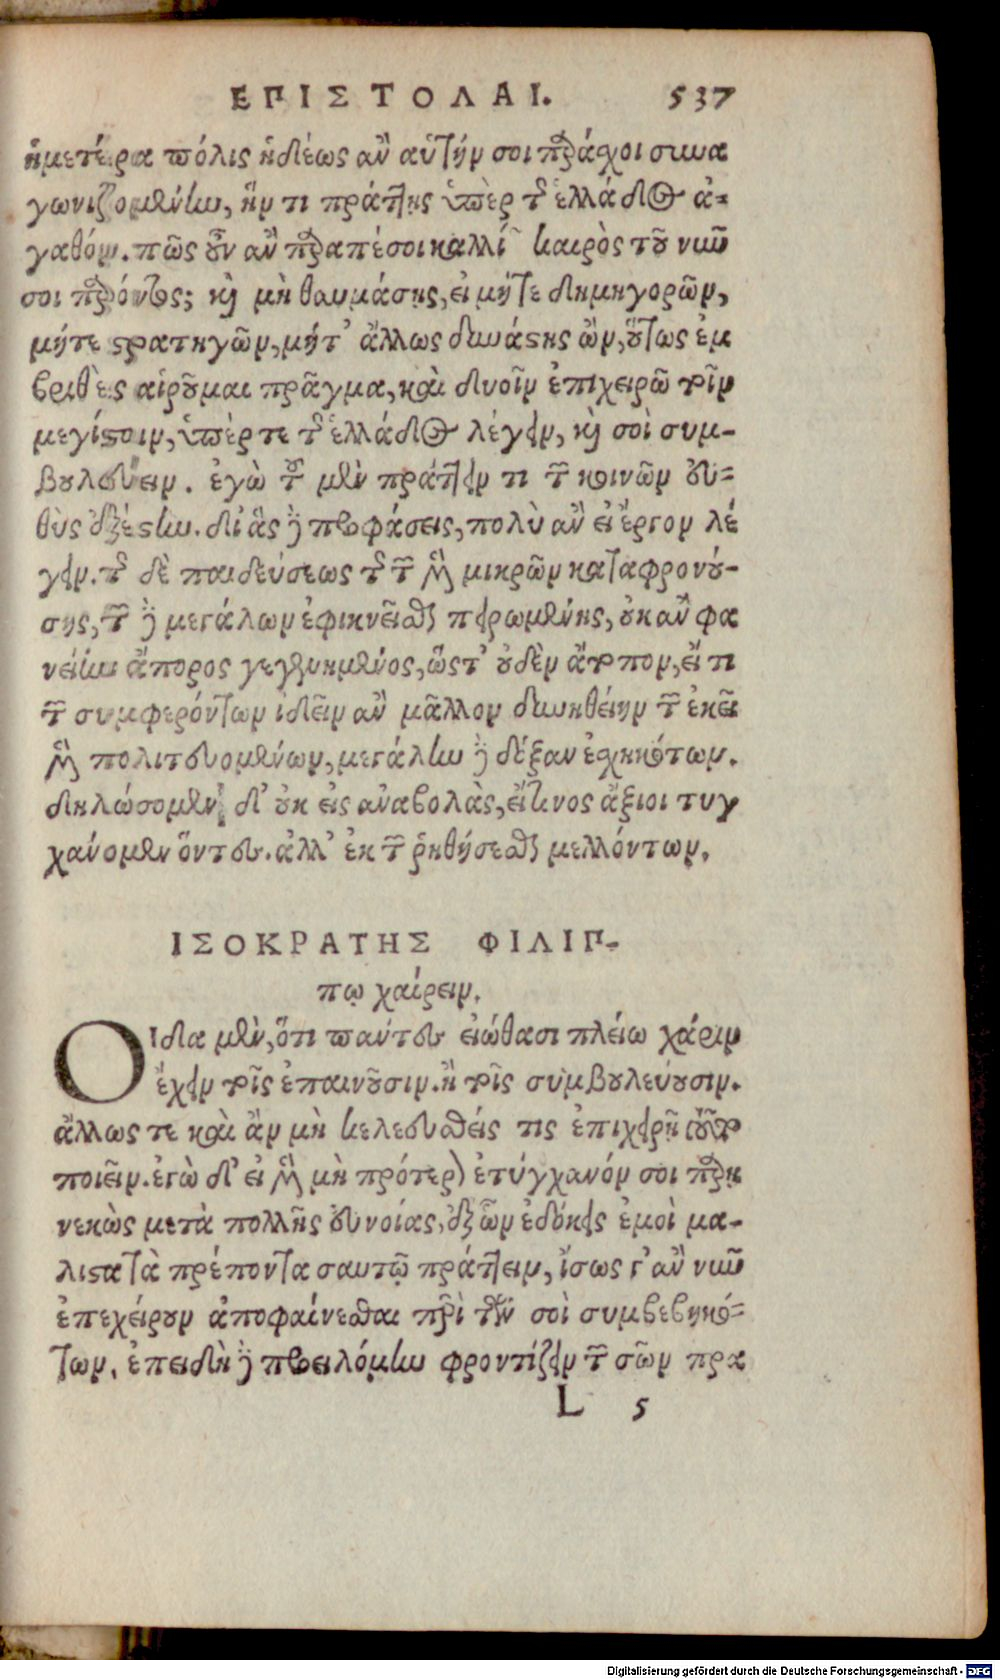 ΕΠΙΣΤΟΛΑΙ. 537
ἡμετέρα πόλις ἡδέως ἂν αὑτὴν σοι παράσχοι συνα
γωνιζομένην, ἤν τι πράττῃς ὑπὲρ τῆς ἑλλάδος ἀ-
γαθόν. πῶς οὖν ἂν παραπέσοι καλλίων καιρὸς τοῦ νῦν
σοι παρόντος; καὶ μὴ θαυμάσῃς, εἰ μήτε δημηγορῶν,
μήτε στρατηγῶν, μήτ' ἄλλως δυνάστης ὢν, οὕτως ἐμ
βριθὲς αἱροῦμαι πρᾶγμα, καὶ δυοῖν ἐπιχειρῶ τοῖν
μεγίστοιν, ὑπέρ τε τῆς ἑλλάδος λέγειν, καὶ σοὶ συμ-
βουλεύειν. ἐγὼ τοῦ μὲν πράττειν τι τῶν κοινῶν εὐ-
θὺς ἐξέστην. δι' ἃς δὲ προφάσεις, πολὺ ἂν εἴη ἔργον λέ
γειν. τῆς δὲ παιδεύσεως τῆς τῶν μὲν μικρῶν καταφρονού-
σης, τῶν δὲ μεγάλων ἐφικνεῖσθαι πειρωμένης, οὐκ ἂν φα
νείην ἄπορος γεγενημένος, ὥστ' οὐδὲν ἄτοπον, εἴ τι
τῶν συμφερόντων ἰδεῖν ἂν μᾶλλον δυνηθείην τῶν ἐκεῖ
μὲν πολιτευομένων, μεγάλην δὲ δόξαν ἐσχηκότων.
δηλώσομεν δ' οὐκ εἰς ἀναβολὰς, εἴ τινος ἄξιοι τυγ
χάνομεν ὄντες. ἀλλ' ἐκ τῶν ῥηθήσεσθαι μελλόντων.
ΙΣΟΚΡΑΤΗΣ ΦΙΛΙΠ-
πῳ χαίρειν.
ΟΙδα μὲν, ὅτι πάντες εἰώθασι πλείω χάριν
ἔχειν τοῖς ἐπαινοῦσιν. ἢ τοῖς συμβουλεύουσιν.
ἄλλως τε καὶ ἂν μὴ κελευσθείς τις ἐπιχειρῇ τοῦτο
ποιεῖν. ἐγὼ δ' εἰ μὲν μὴ πρότερον ἐτύγχανόν σοι παρῃ
νεκὼς μετὰ πολλῆς εὐνοίας, ἐξ ὧν ἐδόκεις ἐμοὶ μά-
λιστα τὰ πρέποντα σαυτῷ πράττειν, ἴσως γ' ἂν νῦν
ἐπεχείρουν ἀποφαίνεσθαι περὶ τῶν σοὶ συμβεβηκό-
των. ἐπειδὴ δὲ προειλόμην φροντίζειν τῶν σῶν πρα
L 5
Digitalisierung gefördert durch die Deutsche Forschungsgemeinschaft - DFG